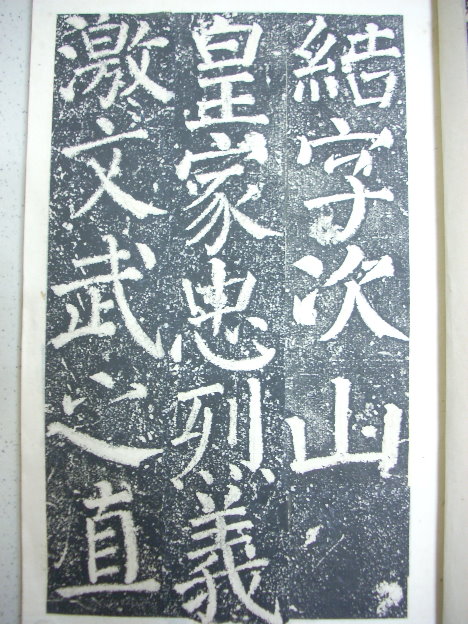 結字次山
皇家忠烈義
激文武之直